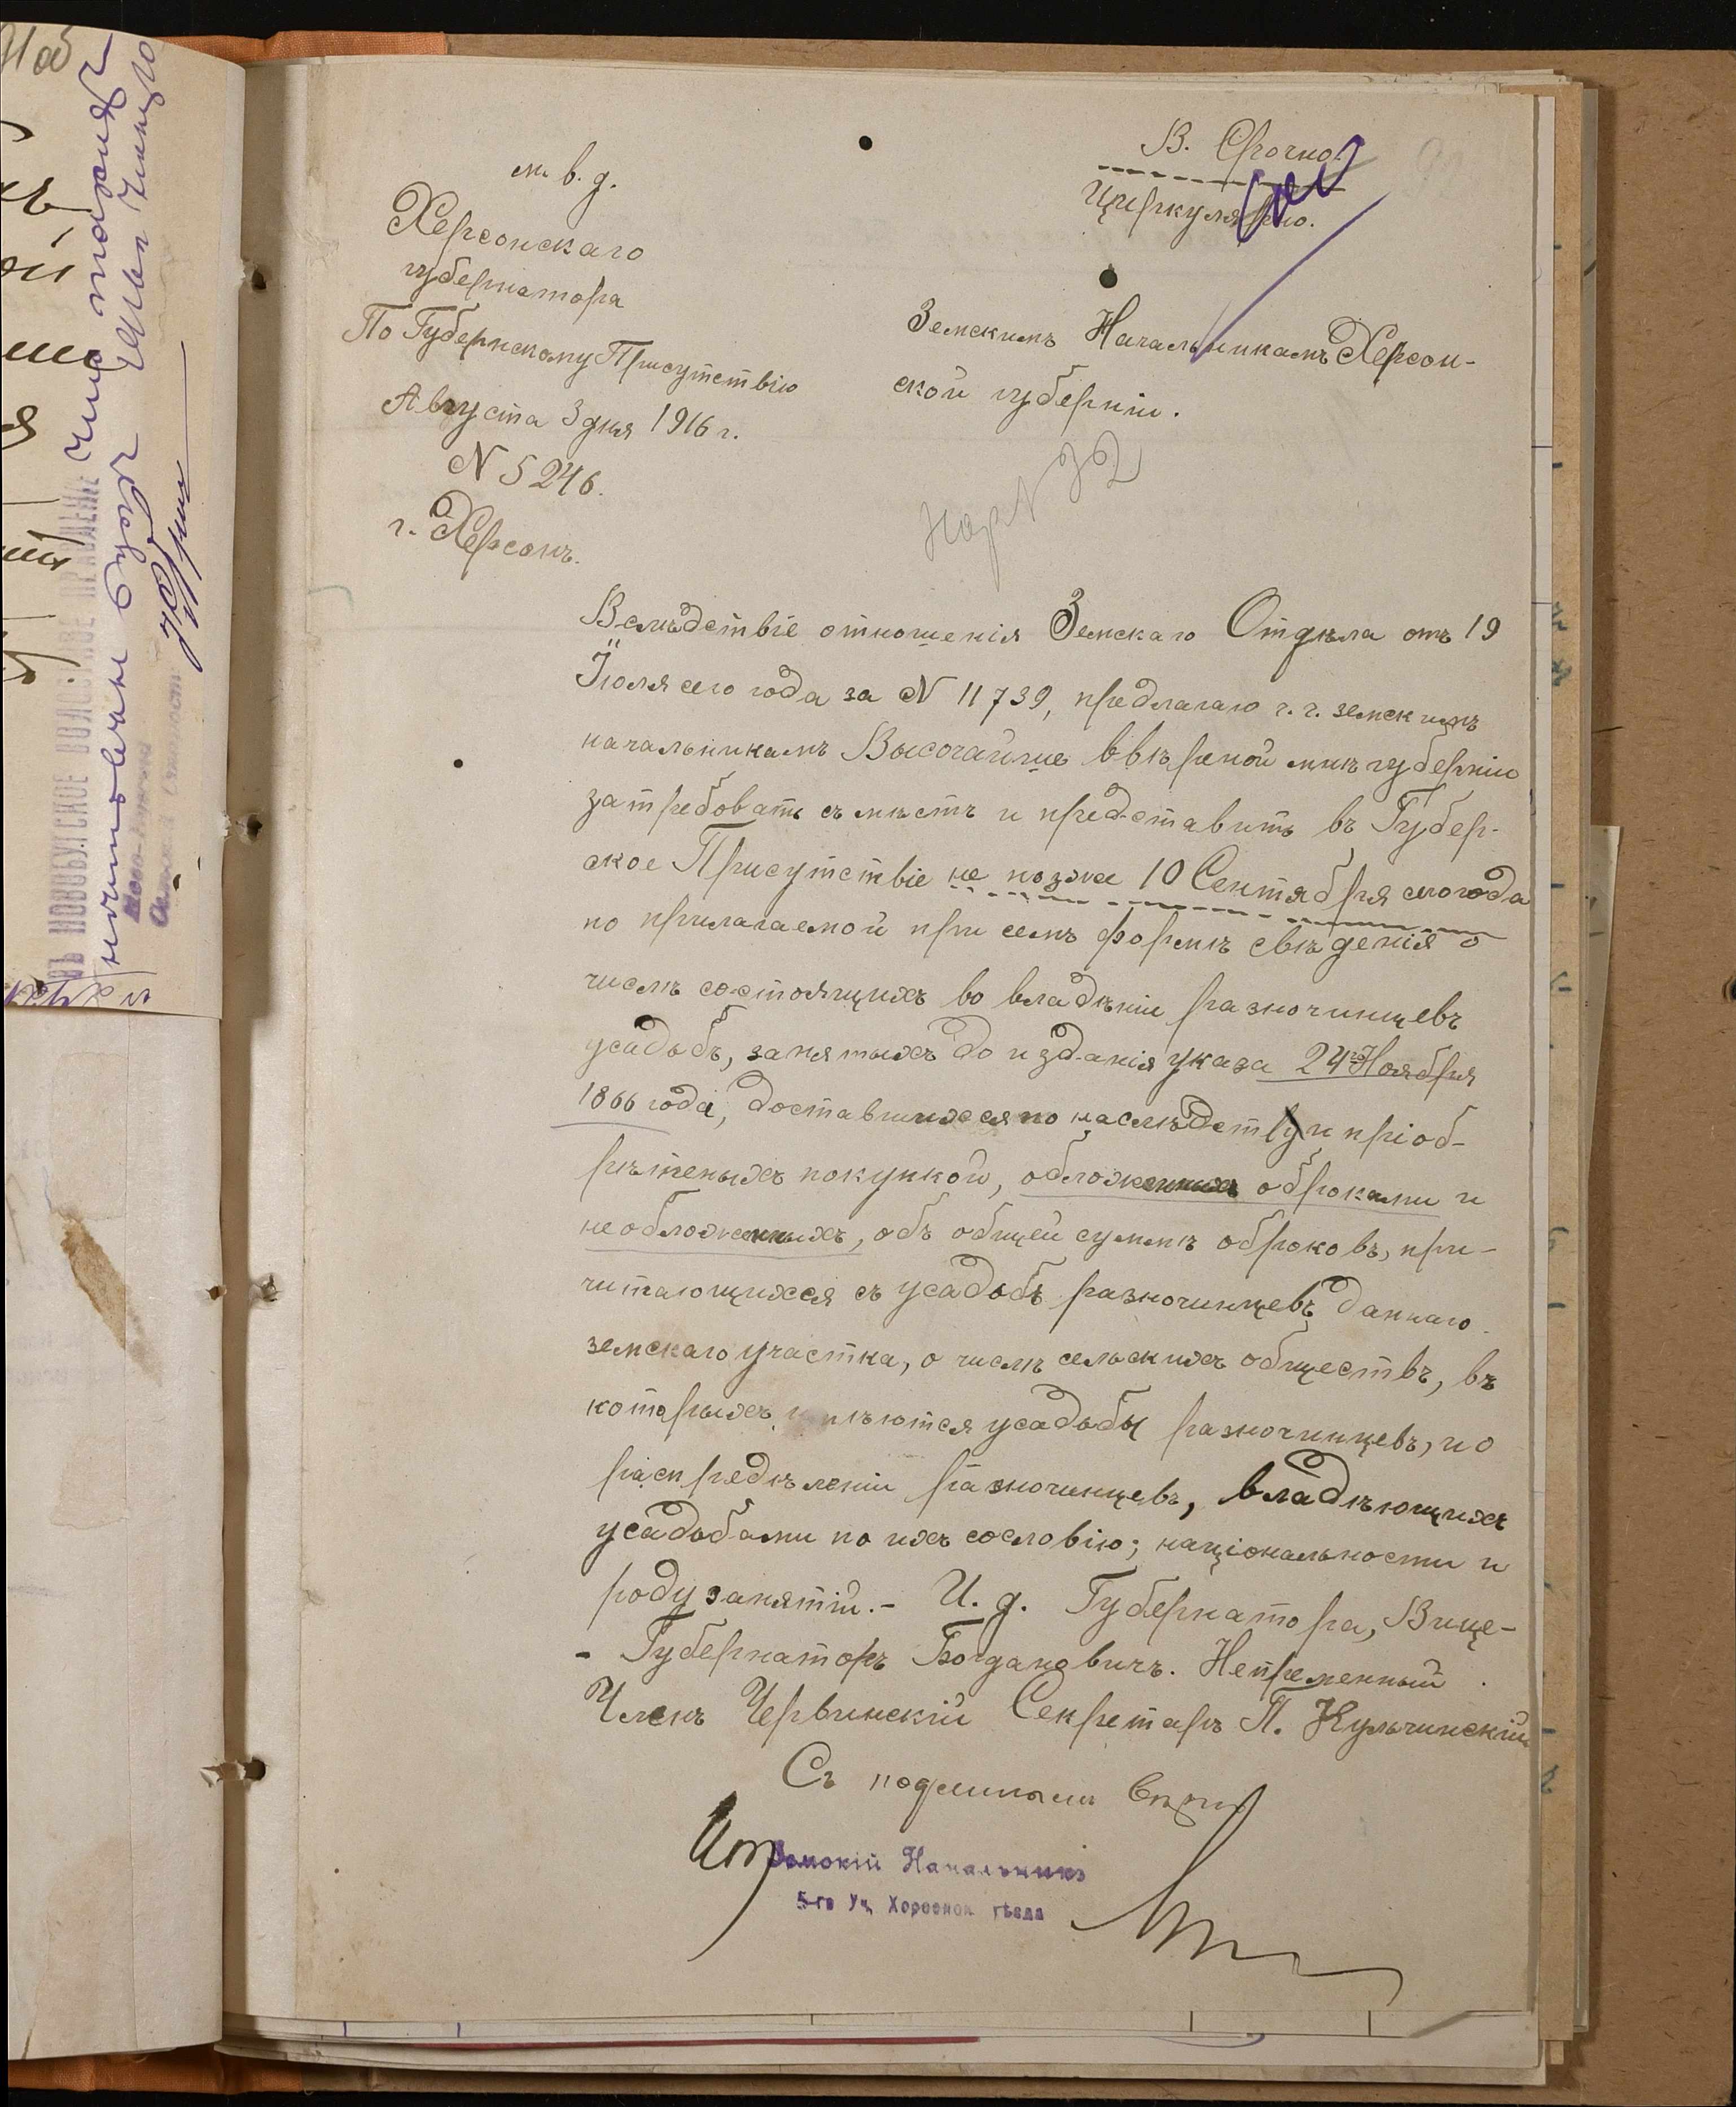 В. Срочно.
Циркулярно.
м. в. д.
Херсонскаго
губернатора
По Губернскому Присутствію
Августа 3 дня 1916 г.
N 5246.
г. Херсонъ.
Земскимъ Начальникамъ Херсон-
ской губерніи.
Нар N 32
Вслѣдствіе отношенія Земскаго Отдѣла отъ 19
Іюля сего года за N 11739, предлагаю г. г. земскимъ
начальникамъ Высочайше ввѣреной мнѣ губерніи
затребовать съ мѣстъ и представить въ Губер-
ское Присутствіе не позже 10 Сентября сего года
по прилагаемой при семъ формѣ свѣденія о
числѣ состоящихъ во владѣніи разночинцевъ
усадьбъ, занятыхъ до изданія указа 24го Ноября
1866 года, доставшихся по наслѣдству и пріоб-
рѣтеныхъ покупкой, обложенныхъ оброками и
необложенныхъ, объ общей суммѣ оброковъ, при-
читающихся съ усадьбъ разночинцевъ даннаго
земскаго участка, о числѣ сельскихъ обществъ, въ
которыхъ имѣются усадьбы разночинцевъ, и о
распредѣленіи разночинцевъ, владѣющихъ
усадьбами по ихъ сословію; національности и
роду занятій.- И. д. Губернатора, Вице-
- Губернаторъ Богдановичъ. Непременный
Членъ Червинскій Секретарь П. Кульчинскій
Съ подлиннымъ вѣрно
Земскій Начальникъ
5-го Уч. Херсонск. уѣзда